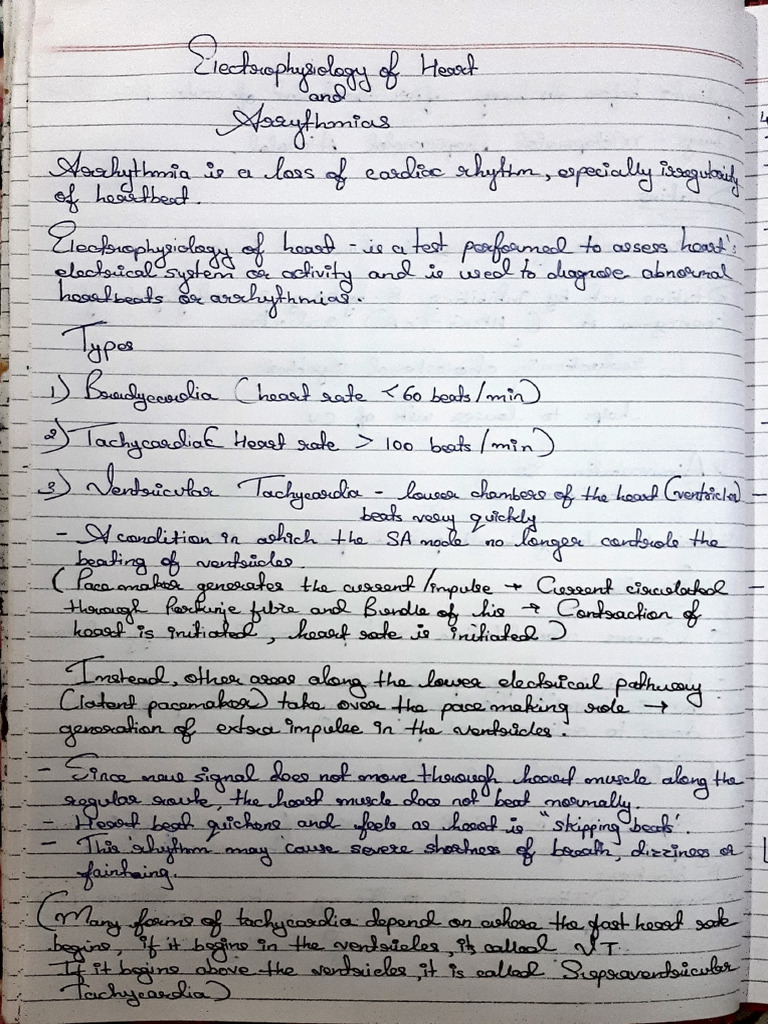 Electrophysiology of Heart
and
Arrythmias
Arrhythmia is a loss of cardiac rhythm, especially irregularity
of heartbeat.
Electrophysiology of heart - is a test performed to assess heart's
electrical system or activity and is used to diagnose abnormal
heartbeats or arrhythmias.
Types
1) Bradycardia (heart rate < 60 beats/min)
2) Tachycardia( Heart rate > 100 beats/min)
3) Ventricular Tachycardia - lower chambers of the heart (ventricles)
beats very quickly
- A condition in which the SA node no longer controls the
beating of ventricles.
(Pacemaker generates the current/impulse → Current circulated
through Purkinje fibre and Bundle of his → Contraction of
heart is initiated, heart rate is initiated)
Instead, other areas along the lower electrical pathway
(latent pacemaker) take over the pacemaking role →
generation of extra impulse in the ventricles.
- Since new signal does not move through heart muscle along the
regular route, the heart muscle does not beat normally.
- Heart beat quickens and feels as heart is "skipping beats'.
- This rhythm may cause severe shortness of breath, dizziness or
fainting.
(Many forms of tachycardia depend on where the fast heart rate
begins, if it begins in the ventricles, its called VT.
If it begins above the ventricles, it is called Supraventricular
Tachycardia)